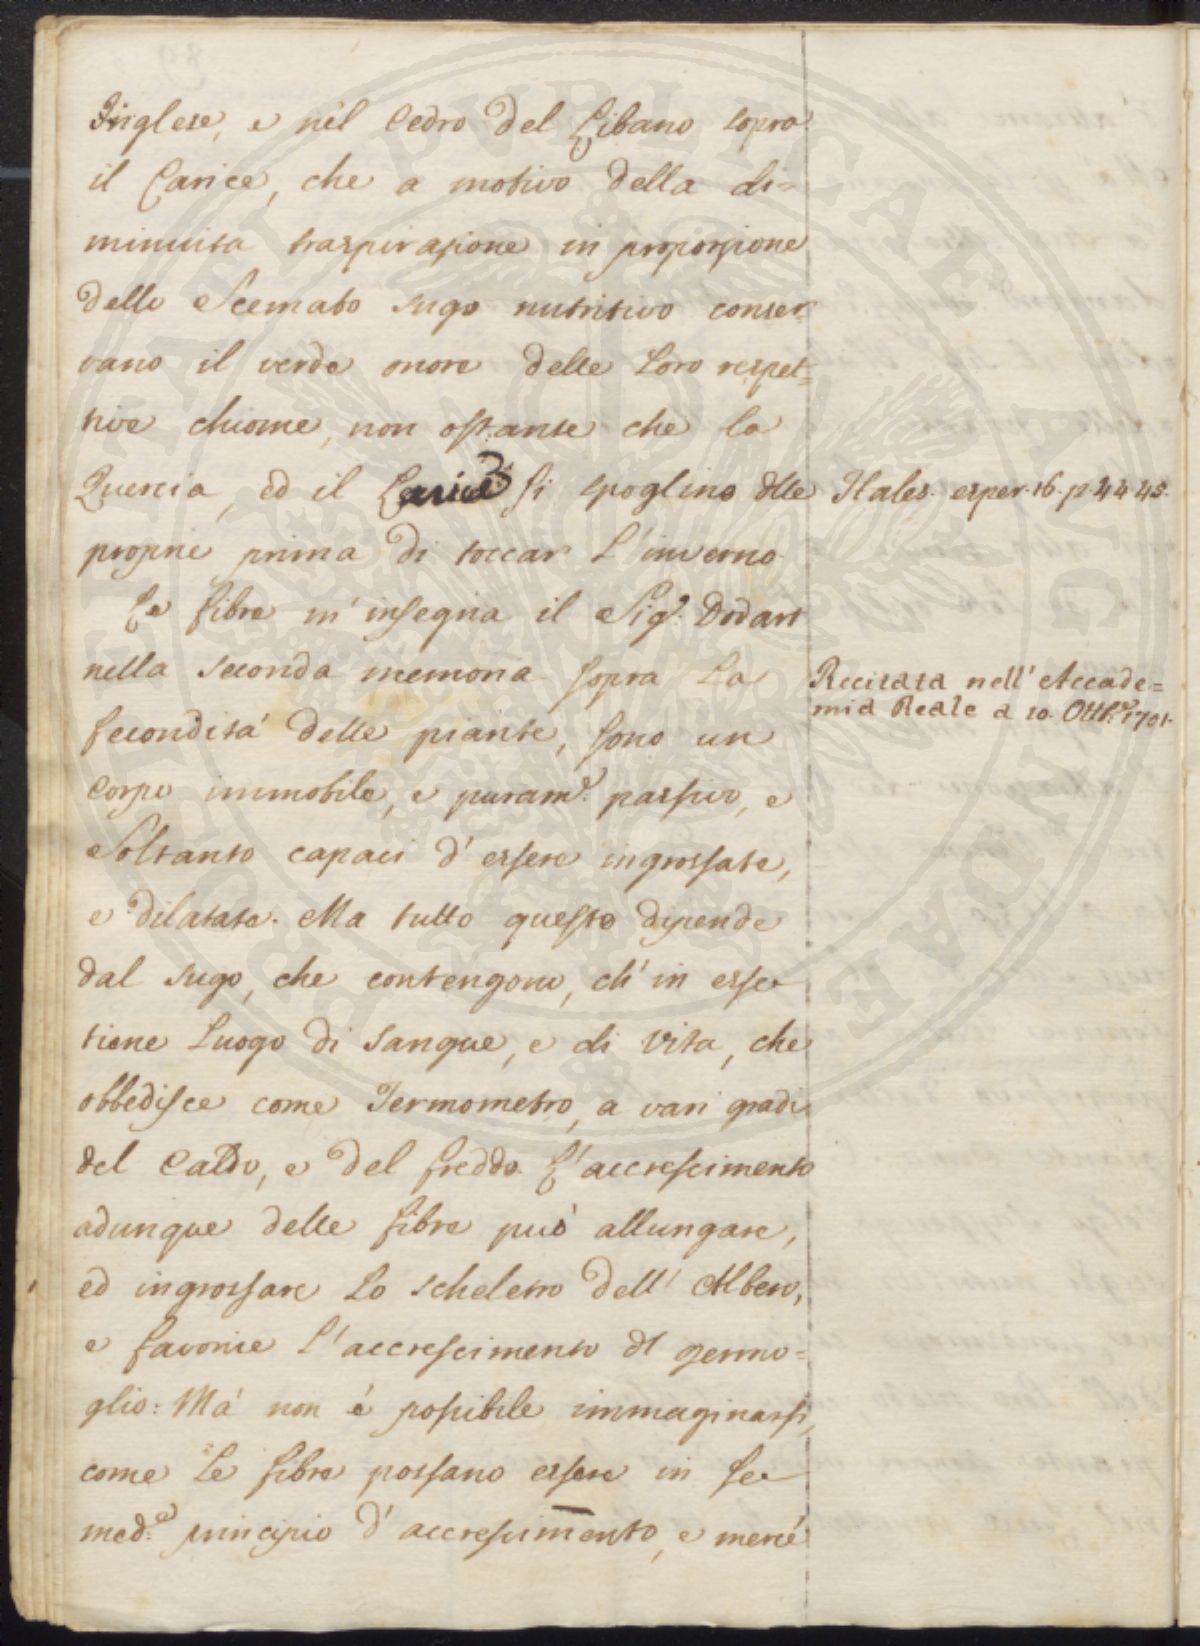 Inglese, e nel Cedro del Libano sopra
il Carice, che a motivo della di=
minuita traspirazione in proporzione
dello Scemato sugo nutritivo conser=
vano il verde onore delle Loro respet=
tive chiome, non ostante che la
Quercia, ed il Carice si spoglino dlle
proprie prima di toccar l'inverno
Hales. esper. 16. p. 44 45.
Le fibre m'insegna il Sig.r Dodart
nella seconda memoria sopra La
Recitata nell'Accade=
mia Reale a 10. Ottb.e 1701.
fecondità delle piante, sono un
Corpo immobile, e puram.e passivo, e
Soltanto capaci d'essere ingrossate,
e dilatate. Ma tutto questo dipende
dal sugo, che contengono, ch'in esse
tiene Luogo di Sangue, e di Vita, che
obbedisce come Termometro, a vari gradi
del Caldo, e del freddo. L'accrescimento
adunque delle fibre può allungare,
ed ingrossare Lo scheletro dell'Albero,
e favorire l'accrescimento dl germo=
glio: Mà non è possibile immaginarsi,
come Le fibre possano essere in se
med.e principio d'accrescimento, e mercè